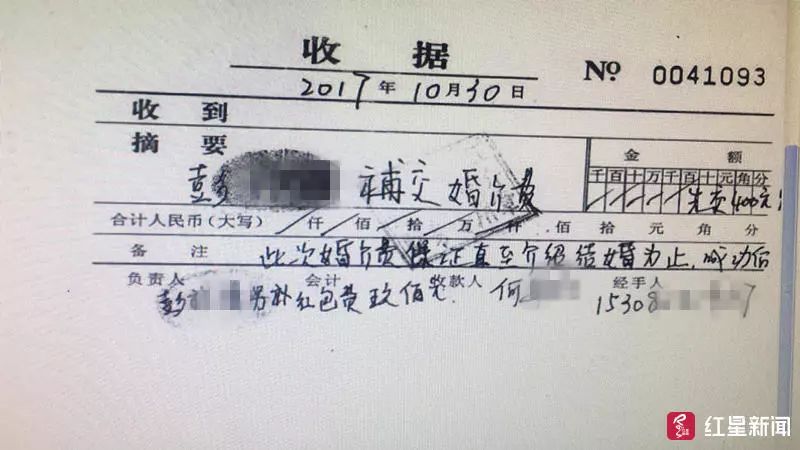 收 据
No 0041093
2017年10月30日
收 到
摘 要
金 额
千百十万千百十元角分
彭 补交婚介费
先卖400元
合计人民币(大写) 仟 佰 拾 万 仟 佰 拾 元 角 分
备 注 此次婚介费保证直至介绍结婚为止,成功后
负责人 会计 收款人 经手人
彭 另补红包费玖佰元. 何 15308 7
红星新闻